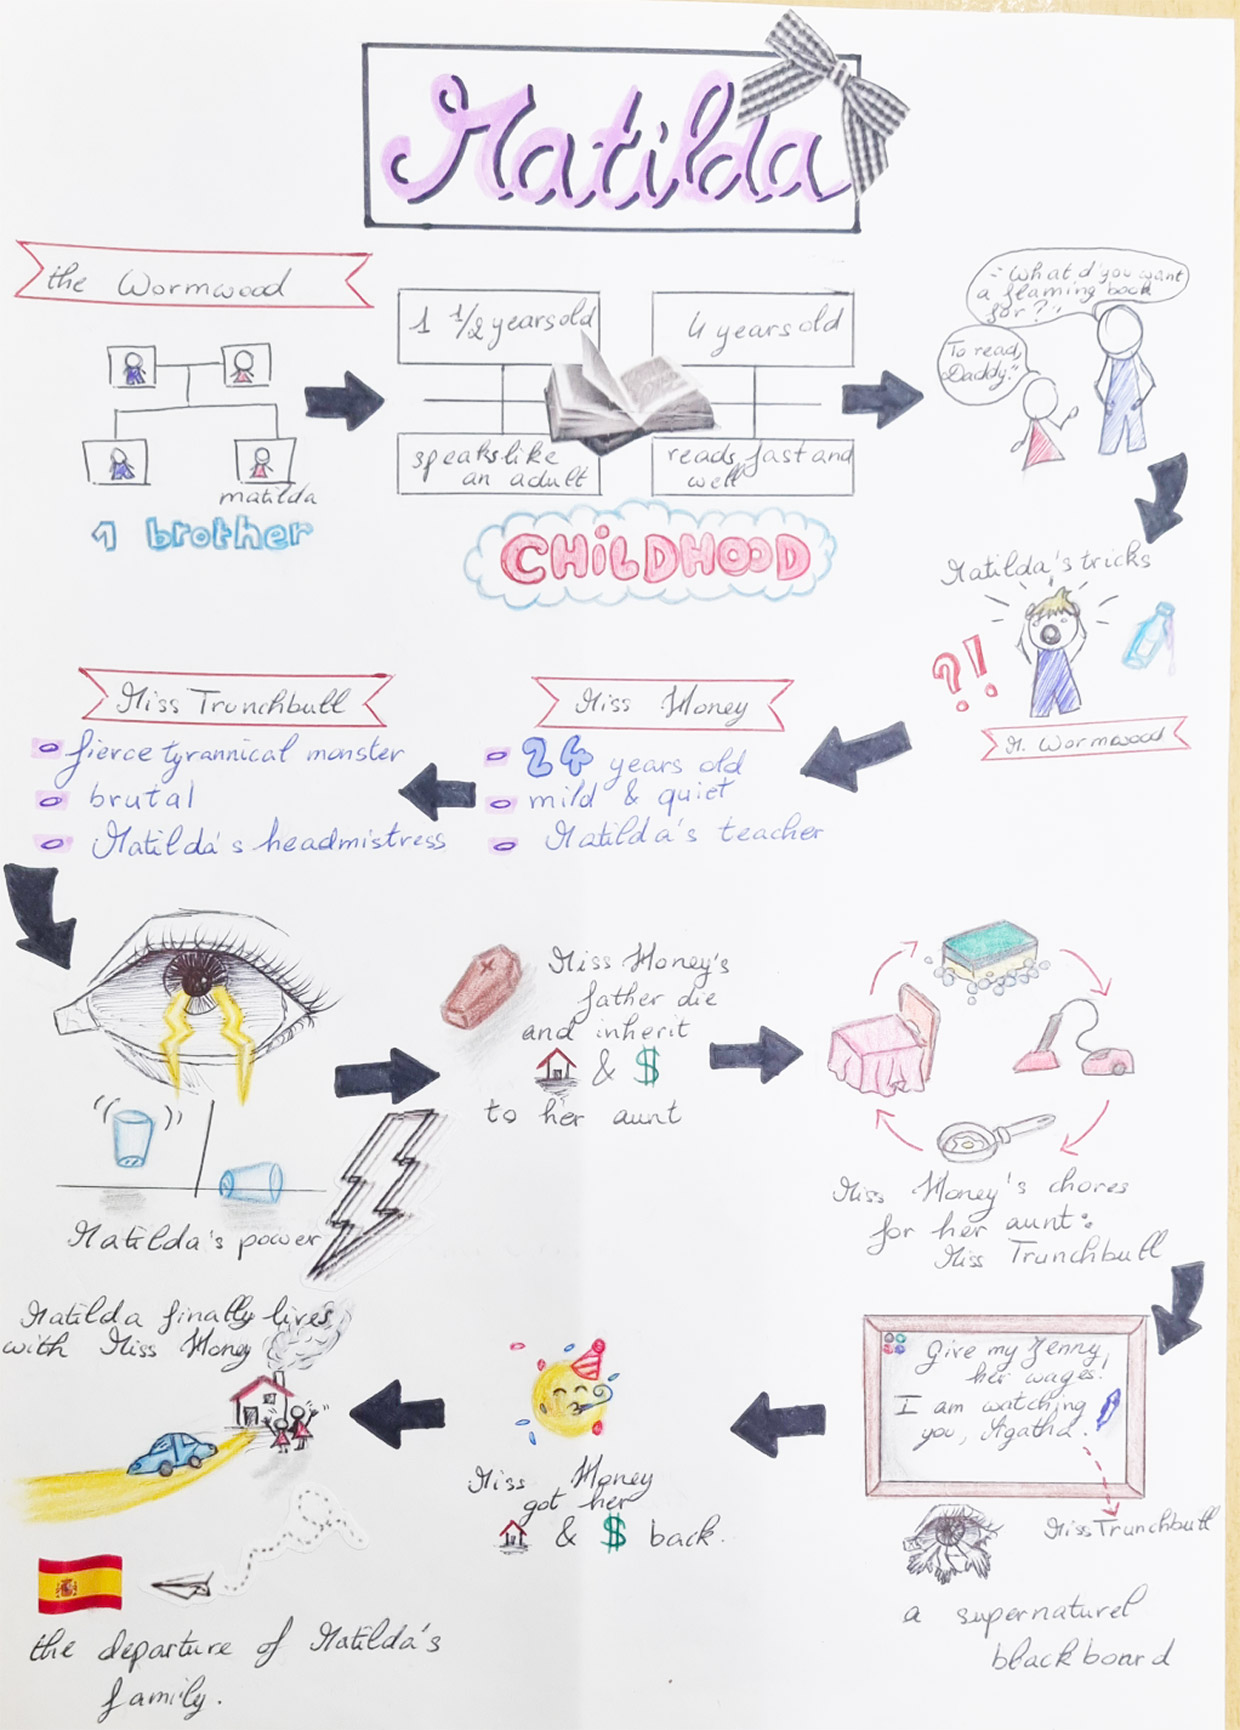 Matilda
the Wormwood
matilda
1 brother
1 1/2 years old
4 years old
speaks like
an adult
reads fast and
well
CHiLDHOOD
- What d'you want
a flaming book
for?"
To read,
Daddy."
Matilda's tricks
?!
M. Wormwood
Miss Honey
24 years old
mild & quiet
Matilda's teacher
Miss Trunchbull
fierce tyrannical monster
brutal
Matilda's headmistress
Matilda's power
Miss Honey's
father die
and inherit
& $
to her aunt
Miss Honey's chores
for her aunt:
Miss Trunchbull
Give my Jenny
her wages.
I am watching
you, Agatha.
Miss Trunchbull
a supernaturel
blackboard
Miss Honey
got her
& $ back.
Matilda finally lives
with Miss Honey
the departure of Matilda's
family.